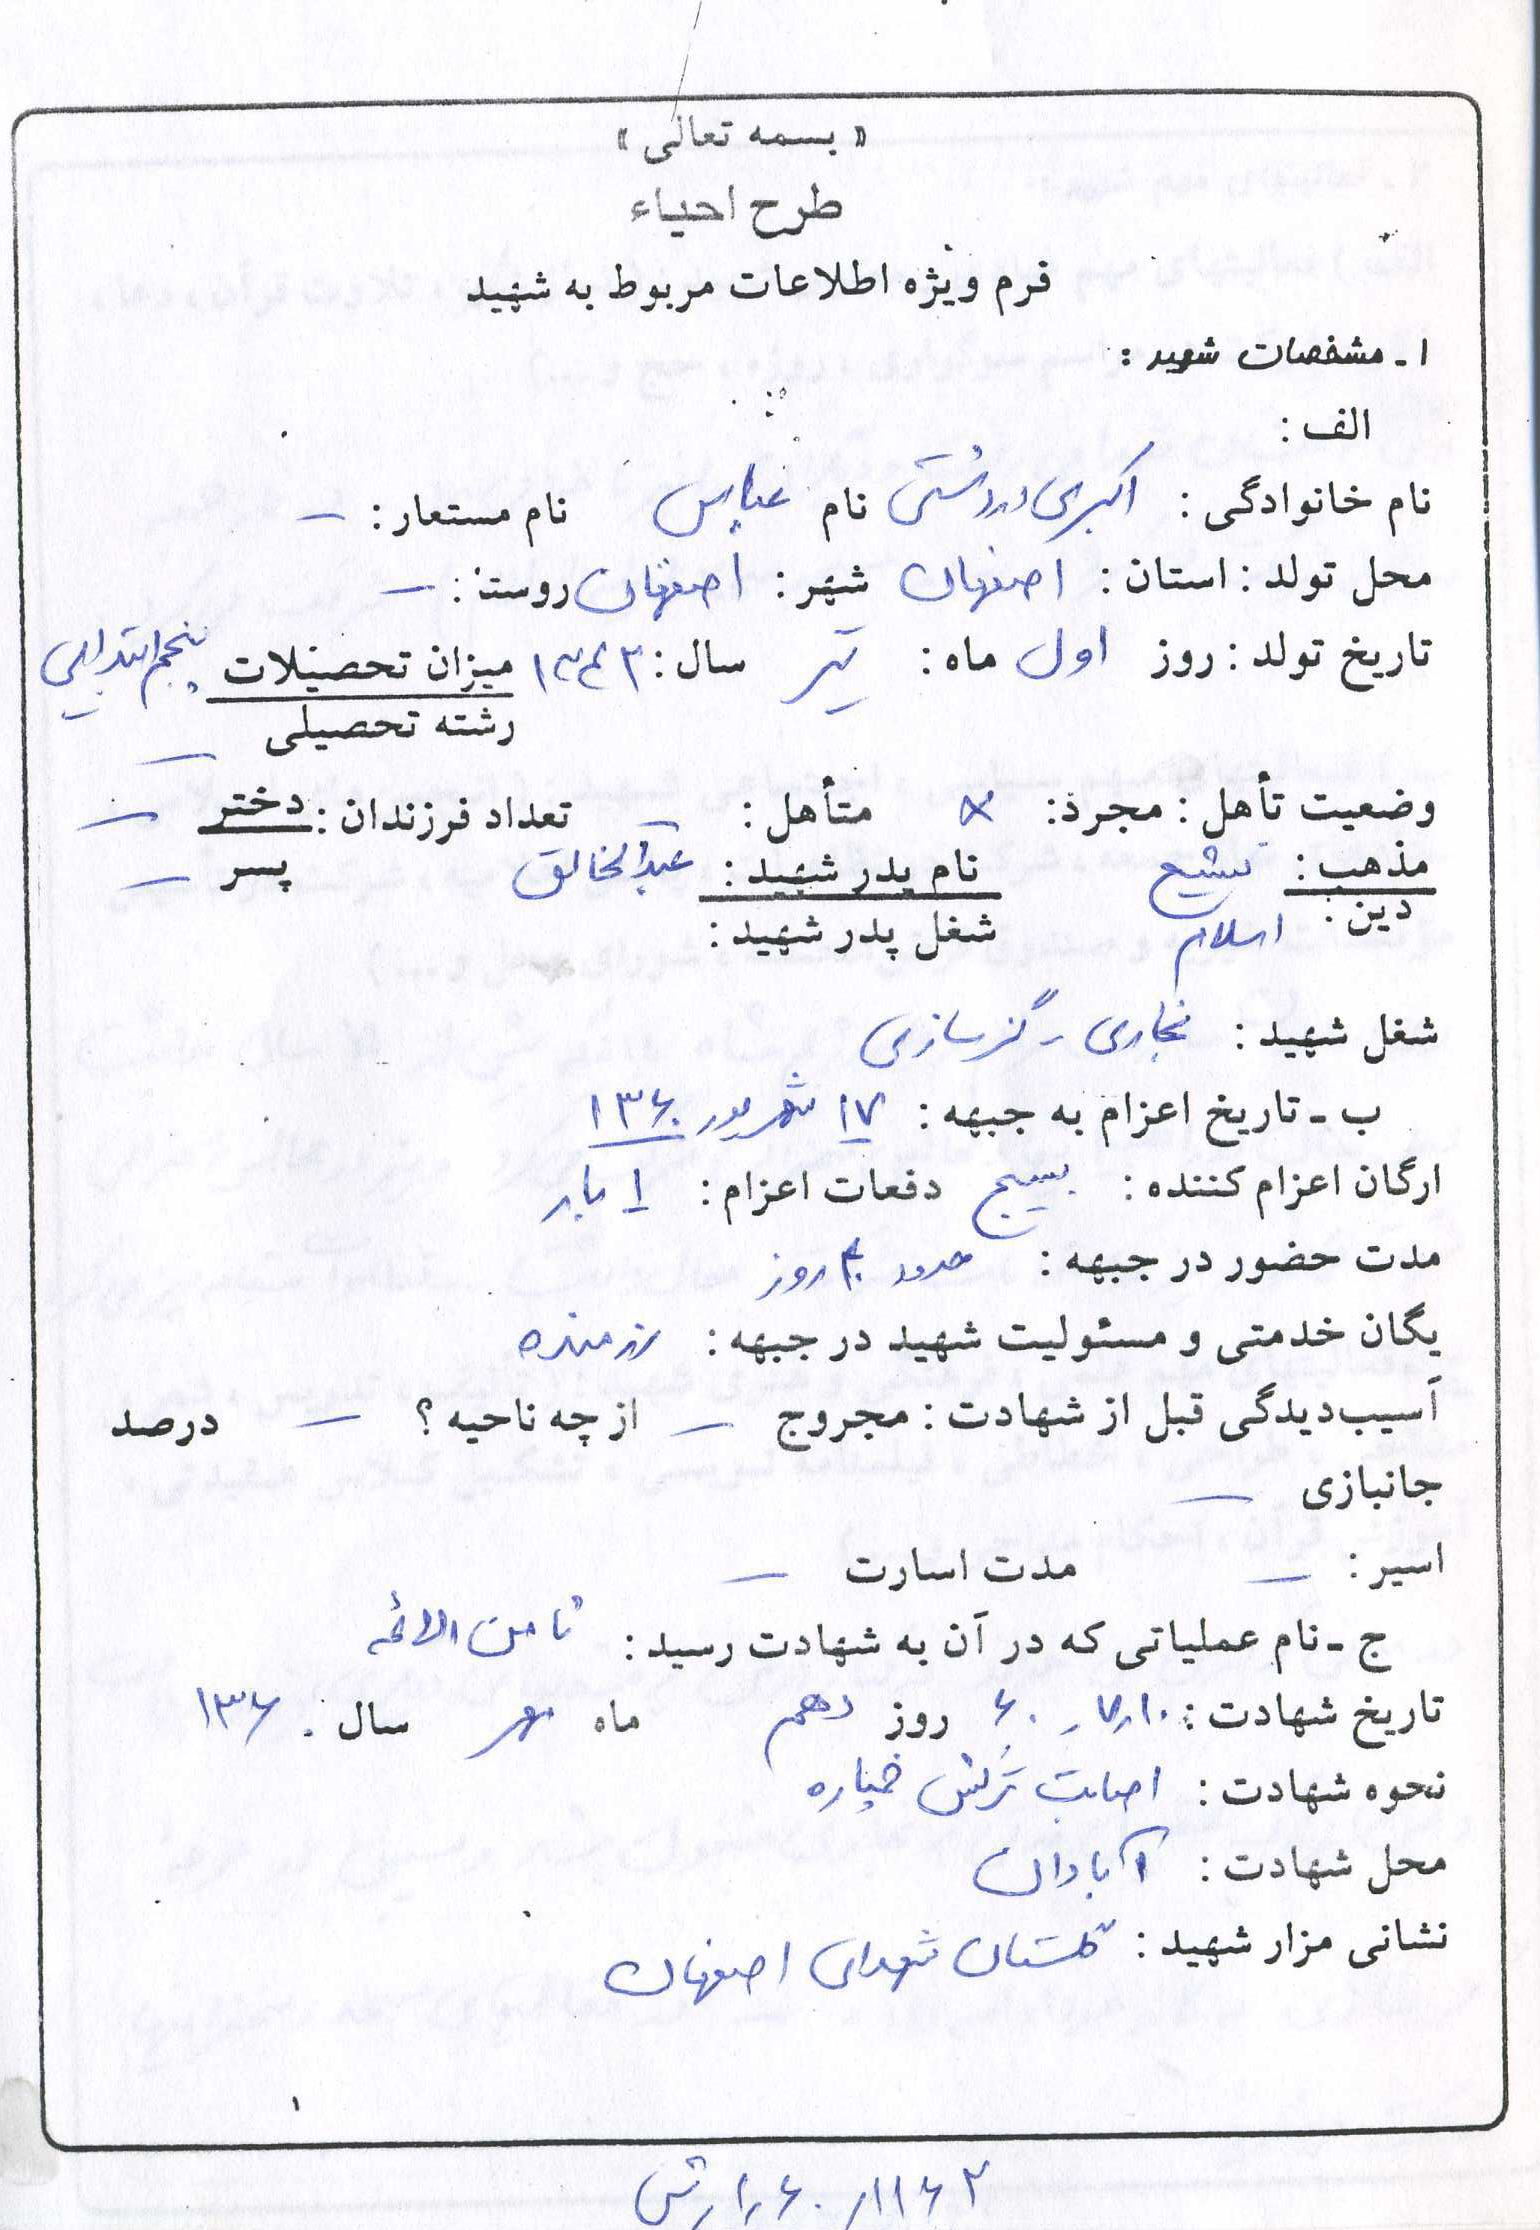 « بسمه تعالی »
طرح احیاء
فرم ویژه اطلاعات مربوط به شهید
۱ ـ مشخصات شهید :
الف :
نام خانوادگی : اکبری دردشتی نام عباس نام مستعار : —
محل تولد : استان : اصفهان شهر : اصفهان روستا : —
تاریخ تولد : روز اول ماه : تیر سال : ۱۳۴۳ میزان تحصیلات پنجم ابتدایی
رشته تحصیلی —
وضعیت تأهل : مجرد : × متأهل : — تعداد فرزندان : دختر —
مذهب : تشیع نام پدر شهید : عبدالخالق پسر —
دین : اسلام شغل پدر شهید :
شغل شهید : نجاری ـ گز سازی
ب ـ تاریخ اعزام به جبهه : ۱۷ شهریور ۱۳۶۰
ارگان اعزام کننده : بسیج دفعات اعزام : ۱ بار
مدت حضور در جبهه : حدود روز
یگان خدمتی و مسئولیت شهید در جبهه : رزمنده
آسیب‌دیدگی قبل از شهادت : مجروح — از چه ناحیه ؟ — درصد
جانبازی —
اسیر : — مدت اسارت —
ج ـ نام عملیاتی که در آن به شهادت رسید : ثامن الائمه
تاریخ شهادت : ۱۰ر۷ر۶۰ روز دهم ماه مهر سال ۱۳۶۰
نحوه شهادت : اصابت ترکش خمپاره
محل شهادت : آبادان
نشانی مزار شهید : گلستان شهدای اصفهان
۱